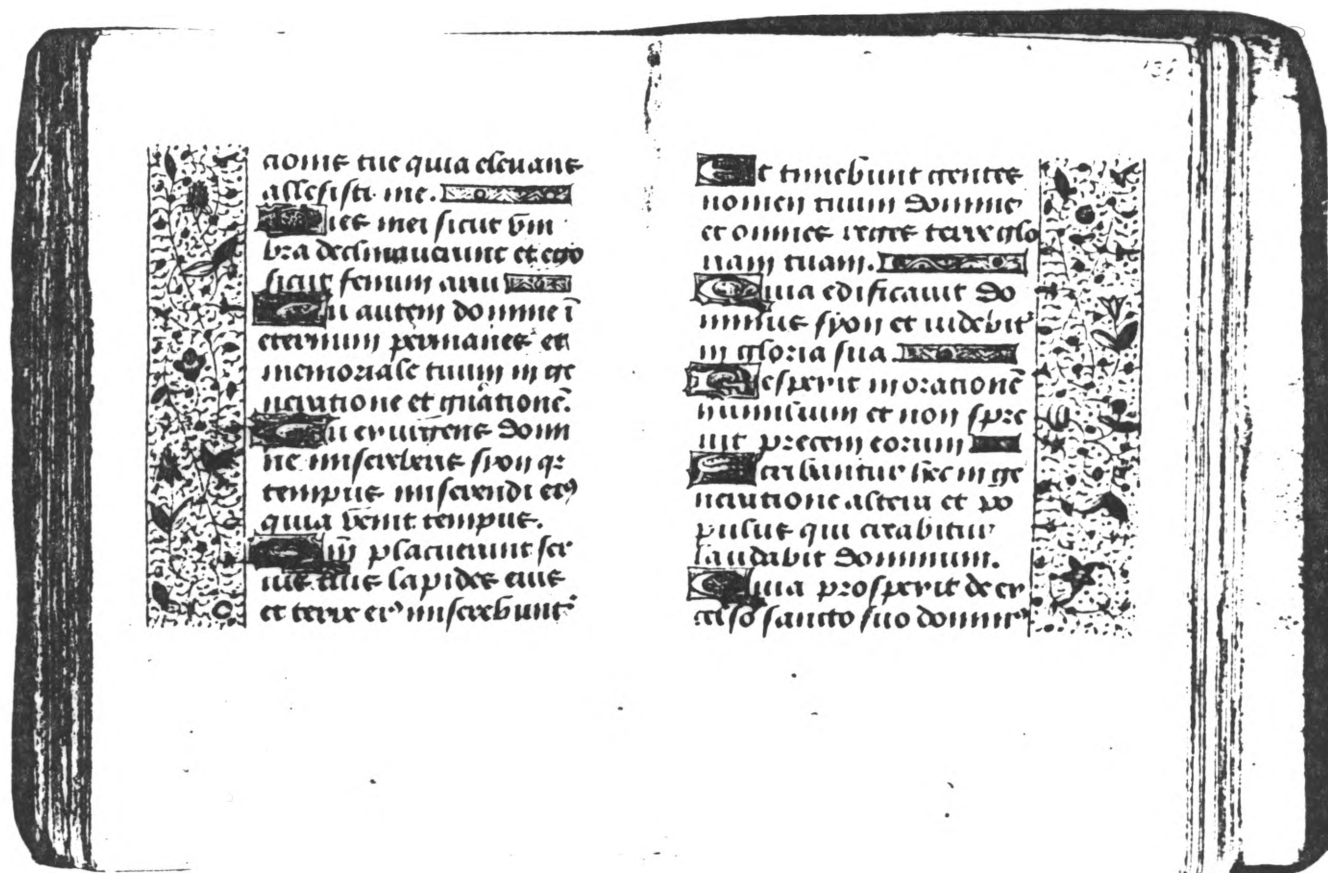 cionis tue quia elevans
allesisti me.
Dies mei sicut vm
bra declinauerunt et ego
sicut fenum arui
Tu autem domine ī
eternum permanes et
memoriale tuum in ge
neratione et gnationē.
Tu exurgens domi
ne misereberis syon qr
tempus miserendi eiꝰ
quia venit tempus.
Qm̄ placuerunt ser
uis tuis lapides eius
et terre eiꝰ miserebunt᷑
138
Et timebunt gentes
nomen tuum domine
et omnes reges terre glo
riam tuam.
Quia edificauit do
minus syon et uidebit᷑
in gloria sua.
Respexit in orationē
humiliū et non spre
uit precem eorum
Scribantur hec in ge
neratione altera et po
pulus qui creabitur
laudabit dominum.
Quia prospexit de ex
celso sancto suo dominꝰ